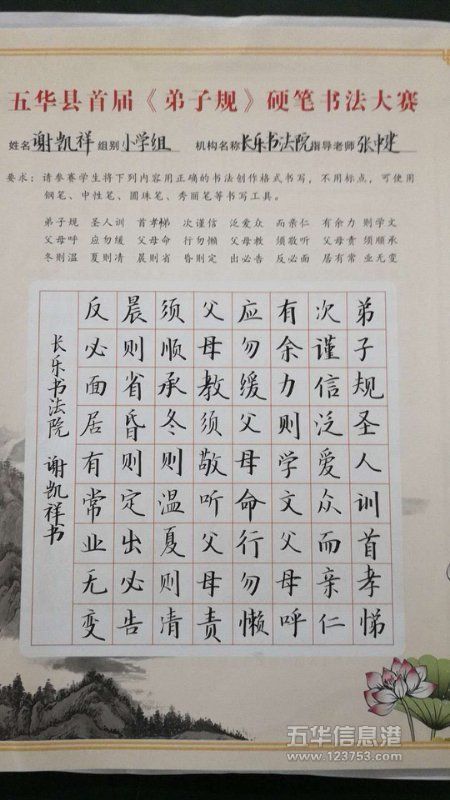 五华县首届《弟子规》硬笔书法大赛
姓名 谢凯祥 组别 小学组 机构名称 长乐书法院 指导老师 张中建
要求：请参赛学生将下列内容用正确的书法创作格式书写，不用标点，可使用
钢笔、中性笔、圆珠笔、秀丽笔等书写工具。
弟子规 圣人训 首孝悌 次谨信 泛爱众 而亲仁 有余力 则学文
父母呼 应勿缓 父母命 行勿懒 父母教 须敬听 父母责 须顺承
冬则温 夏则凊 晨则省 昏则定 出必告 反必面 居有常 业无变
弟子规圣人训首孝悌
次谨信泛爱众而亲仁
有余力则学文父母呼
应勿缓父母命行勿懒
父母教须敬听父母责
须顺承冬则温夏则清
晨则省昏则定出必告
反必面居有常业无变
长乐书法院 谢凯祥书
五华信息港
www.123753.com